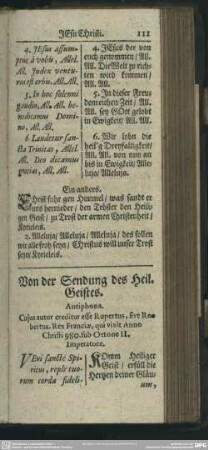 JEsu Christi. 111
4. JEsus assumptus
à vobis, Allel.
All. Judex venturus
est orbis. All. All.
5. In hoc solemni
gaudio, All. All. benedicamus
Domino,
All. All.
6. Laudetur sancta
Trinitas, Allel.
All. Deo dicamus
gratias, All. All.
4. JEsus der von
euch genommen / All.
All. Die Welt zu richten
wird kommen /
All. All.
5. In dieser Freudenreichen
Zeit / All.
All. sey GOtt gelobt
in Ewigkeit / All. All.
6. Wir lobn die
heil'g Dreyfaltigkeit /
All. All. von nun an
bis in Ewigkeit / Alleluja /
Alleluja.
Ein anders.
Christ fuhr gen Himmel / was sandt er
uns hernieder / den Tröster den Heiligen
Geist / zu Trost der armen Christenheit /
Kyrieleis.
2. Alleluja / Alleluja / Alleluja / des sollen
wir alle froh seyn / Christus will unser Trost
seyn / Kyrieleis.
Von der Sendung des Heil.
Geistes.
Antiphona.
Cujus autor creditur esse Rupertus, sive Robertus.
Rex Franciæ, qui vixit Anno
Christi 980. sub Ottone II.
Imperatore.
VEni sancte Spiritus,
reple tuorum
corda fideli-
KOmm Heiliger
Geist / erfüll die
Hertzen deiner Gläu-
um,